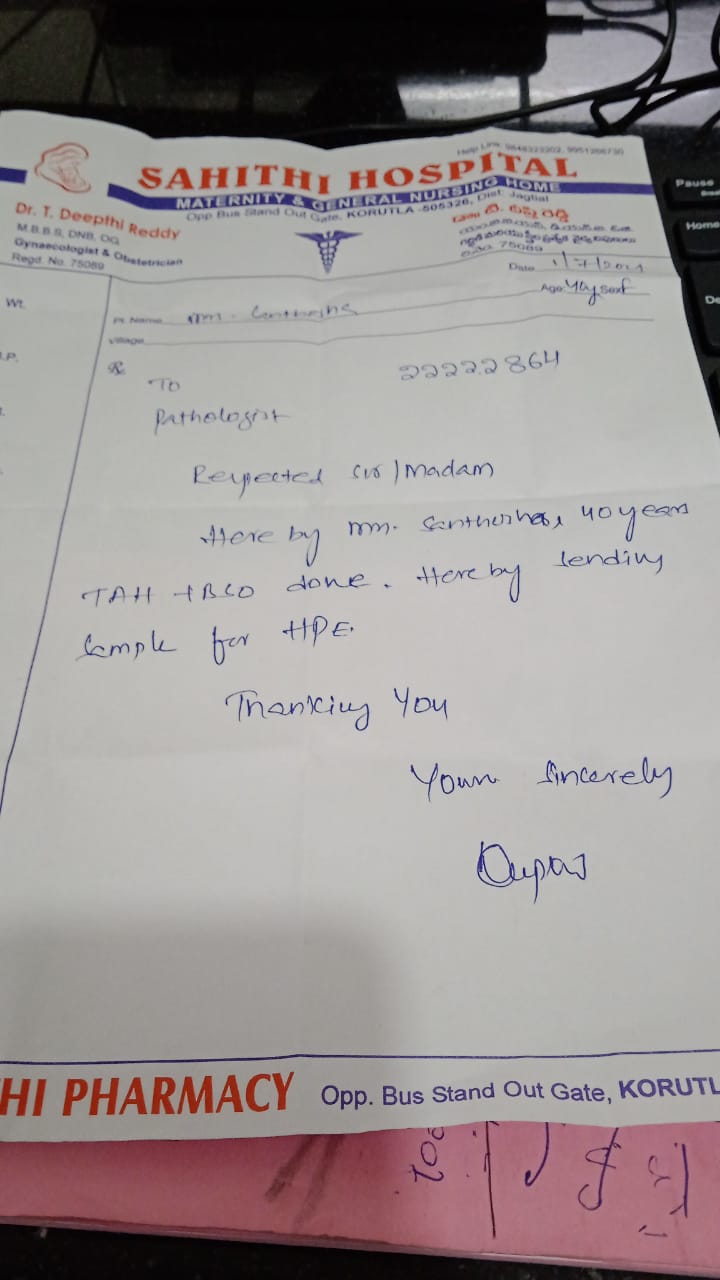 Help Line: 9848323202, 9951266730
SAHITHI HOSPITAL
MATERNITY & GENERAL NURSING HOME
Opp Bus Stand Out Gate, KORUTLA -505326, Dist. Jagtial
Dr. T. Deepthi Reddy
M.B.B.S, DNB, OG
Gynaecologist & Obstetrician
Regd. No. 75089
డా॥ టి. దీప్తి రెడ్డి
75089
Date 1/7/2021
Pt. Name Mrs.
Age: 40y Sex: F
Village
Wt.
B.P.
Rx
22222864
To
Pathologist
Respected Sir/Madam
Here by Mrs. 40 years
TAH + BSO done. Here by sending
sample for HPE.
Thanking You
Yours Sincerely
HI PHARMACY Opp. Bus Stand Out Gate, KORUTL